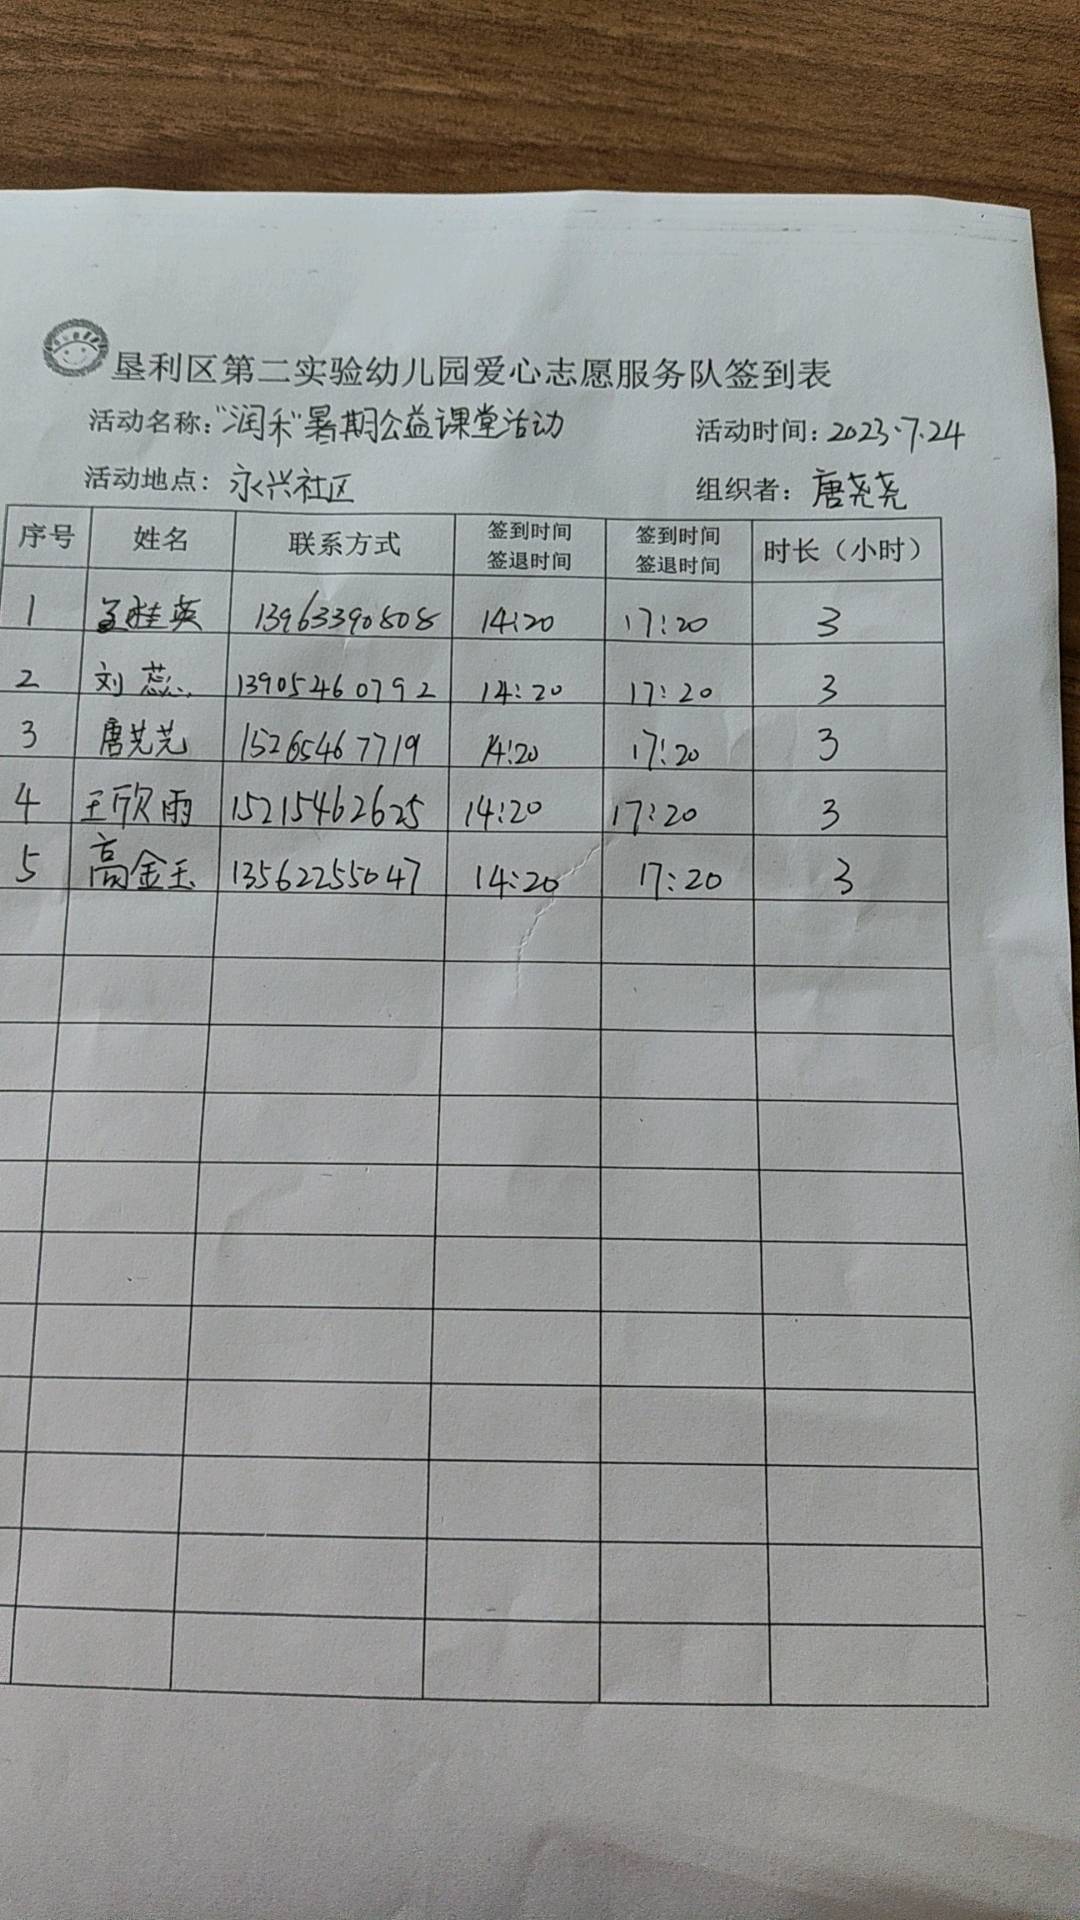 垦利区第二实验幼儿园爱心志愿服务队签到表
活动名称："润禾"暑期公益课堂活动 活动时间：2023.7.24
活动地点：永兴社区 组织者：唐尧尧
序号 姓名 联系方式 签到时间 签退时间 签到时间 签退时间 时长（小时）
1 孟桂英 13963390808 14:20 17:20 3
2 刘蕊 13905460792 14:20 17:20 3
3 唐尧尧 15265467719 14:20 17:20 3
4 王欣雨 15215462625 14:20 17:20 3
5 高金玉 13562255047 14:20 17:20 3